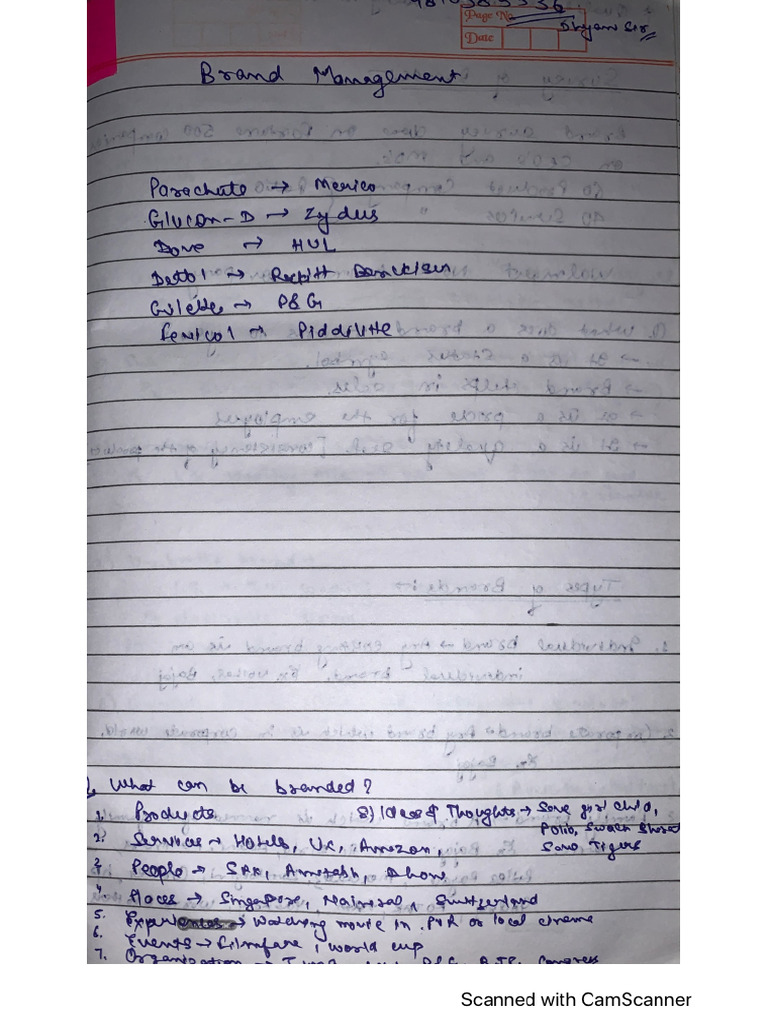 Page No.
Date
Shyam Sir
Brand Management
Parachute → Merico
Glucon-D → Zydus
Dove → HUL
Dettol → Reckitt Benckiser
Gillette → P&G
Fevicol → Pidilite
What can be branded?
1. Products
8) Ideas & Thoughts → Save girl child,
Polio, Swach Bharat
Save Tigers
2. Services → Hotels, UC, Amazon,
3. People → SRK, Amitabh, Dhoni
4. Places → Singapore, Nainital, Switzerland
5. Experiences → Watching movie in PVR or local cinema
6. Events → Filmfare, World cup
7. Organization → BJP, Congress
Scanned with CamScanner